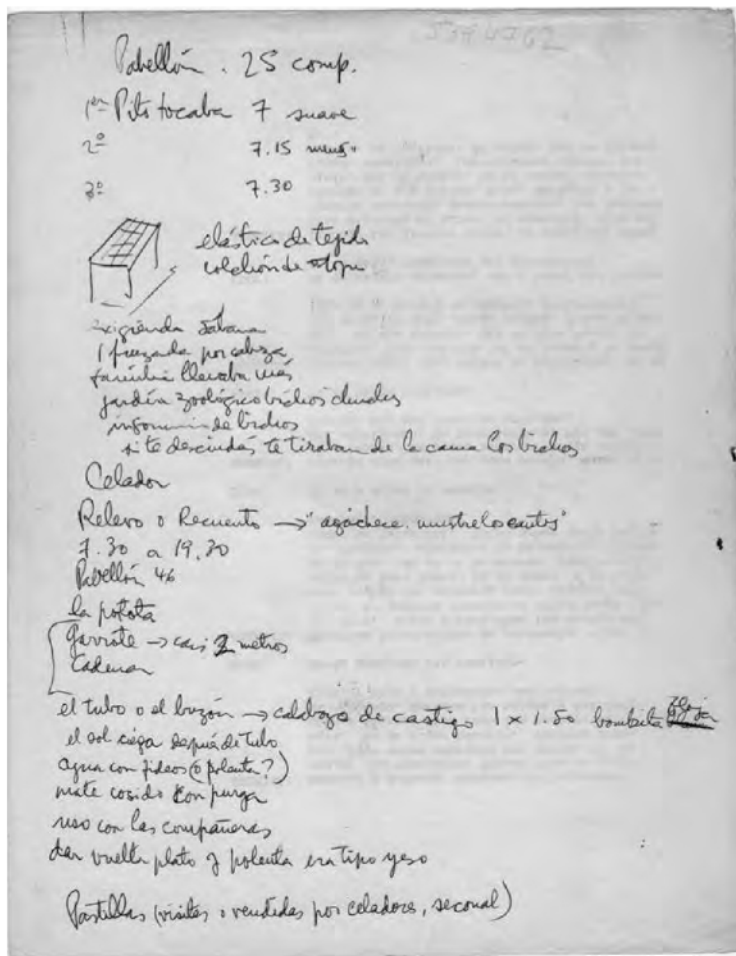 Pabellón. 25 comp.
1er Pito tocaba 7 suave
2º 7.15 menos
3º 7.30
elástico de tejido
colchón de estopa
exigienda sabana
1 frezada por cabeza
familia llevaba más
jardín zoológico bichos
de bichos
si te descuidás te tiraban de la cama los bichos
Celador
Relevo o Recuento → "agáchese. muestrelo antes"
7.30 a 19.30
Pabellón 46
la
garrote → casi 2 metros
Cadenas
el tubo o el buzón → calabozo de castigo 1 x 1.50 bombita
el sol ciega después de tubo
agua con fideos (o polenta?)
mate cosido con purga
uso con las compañeras
dar vuelta plato y polenta era tipo yeso
Pastillas (visitas o vendidas por celadores, seconal)